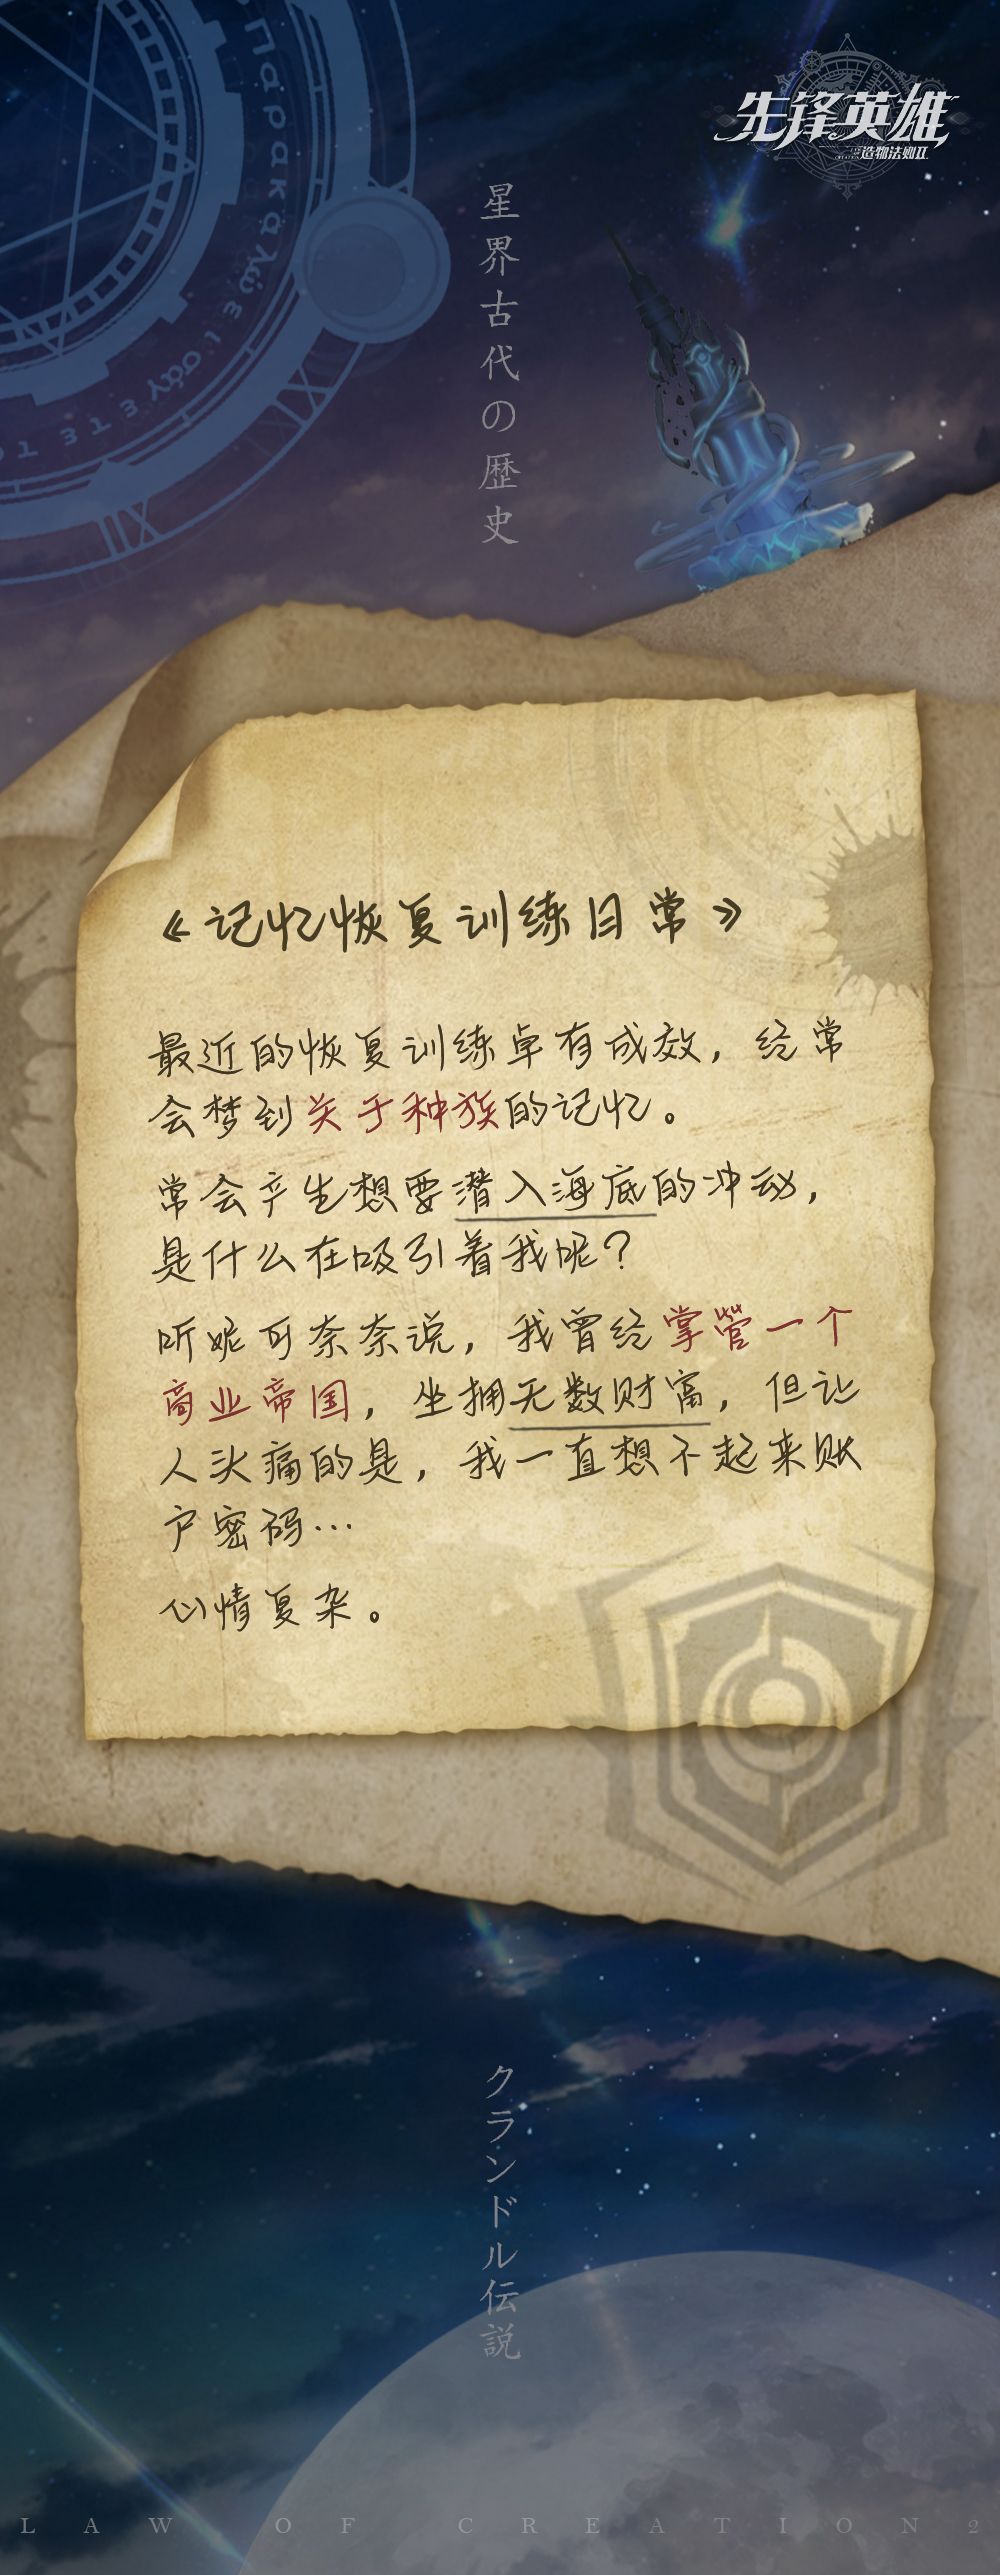 παρακαλώ εισάγετε τε
先锋英雄
造物法则II
星界古代の歴史
《记忆恢复训练日常》
最近的恢复训练卓有成效，经常
会梦到关于种族的记忆。
常会产生想要潜入海底的冲动，
是什么在吸引着我呢？
听妮可奈奈说，我曾经掌管一个
商业帝国，坐拥无数财富，但让
人头痛的是，我一直想不起来账
户密码…
心情复杂。
クランドル伝説
LAW OF CREATION2